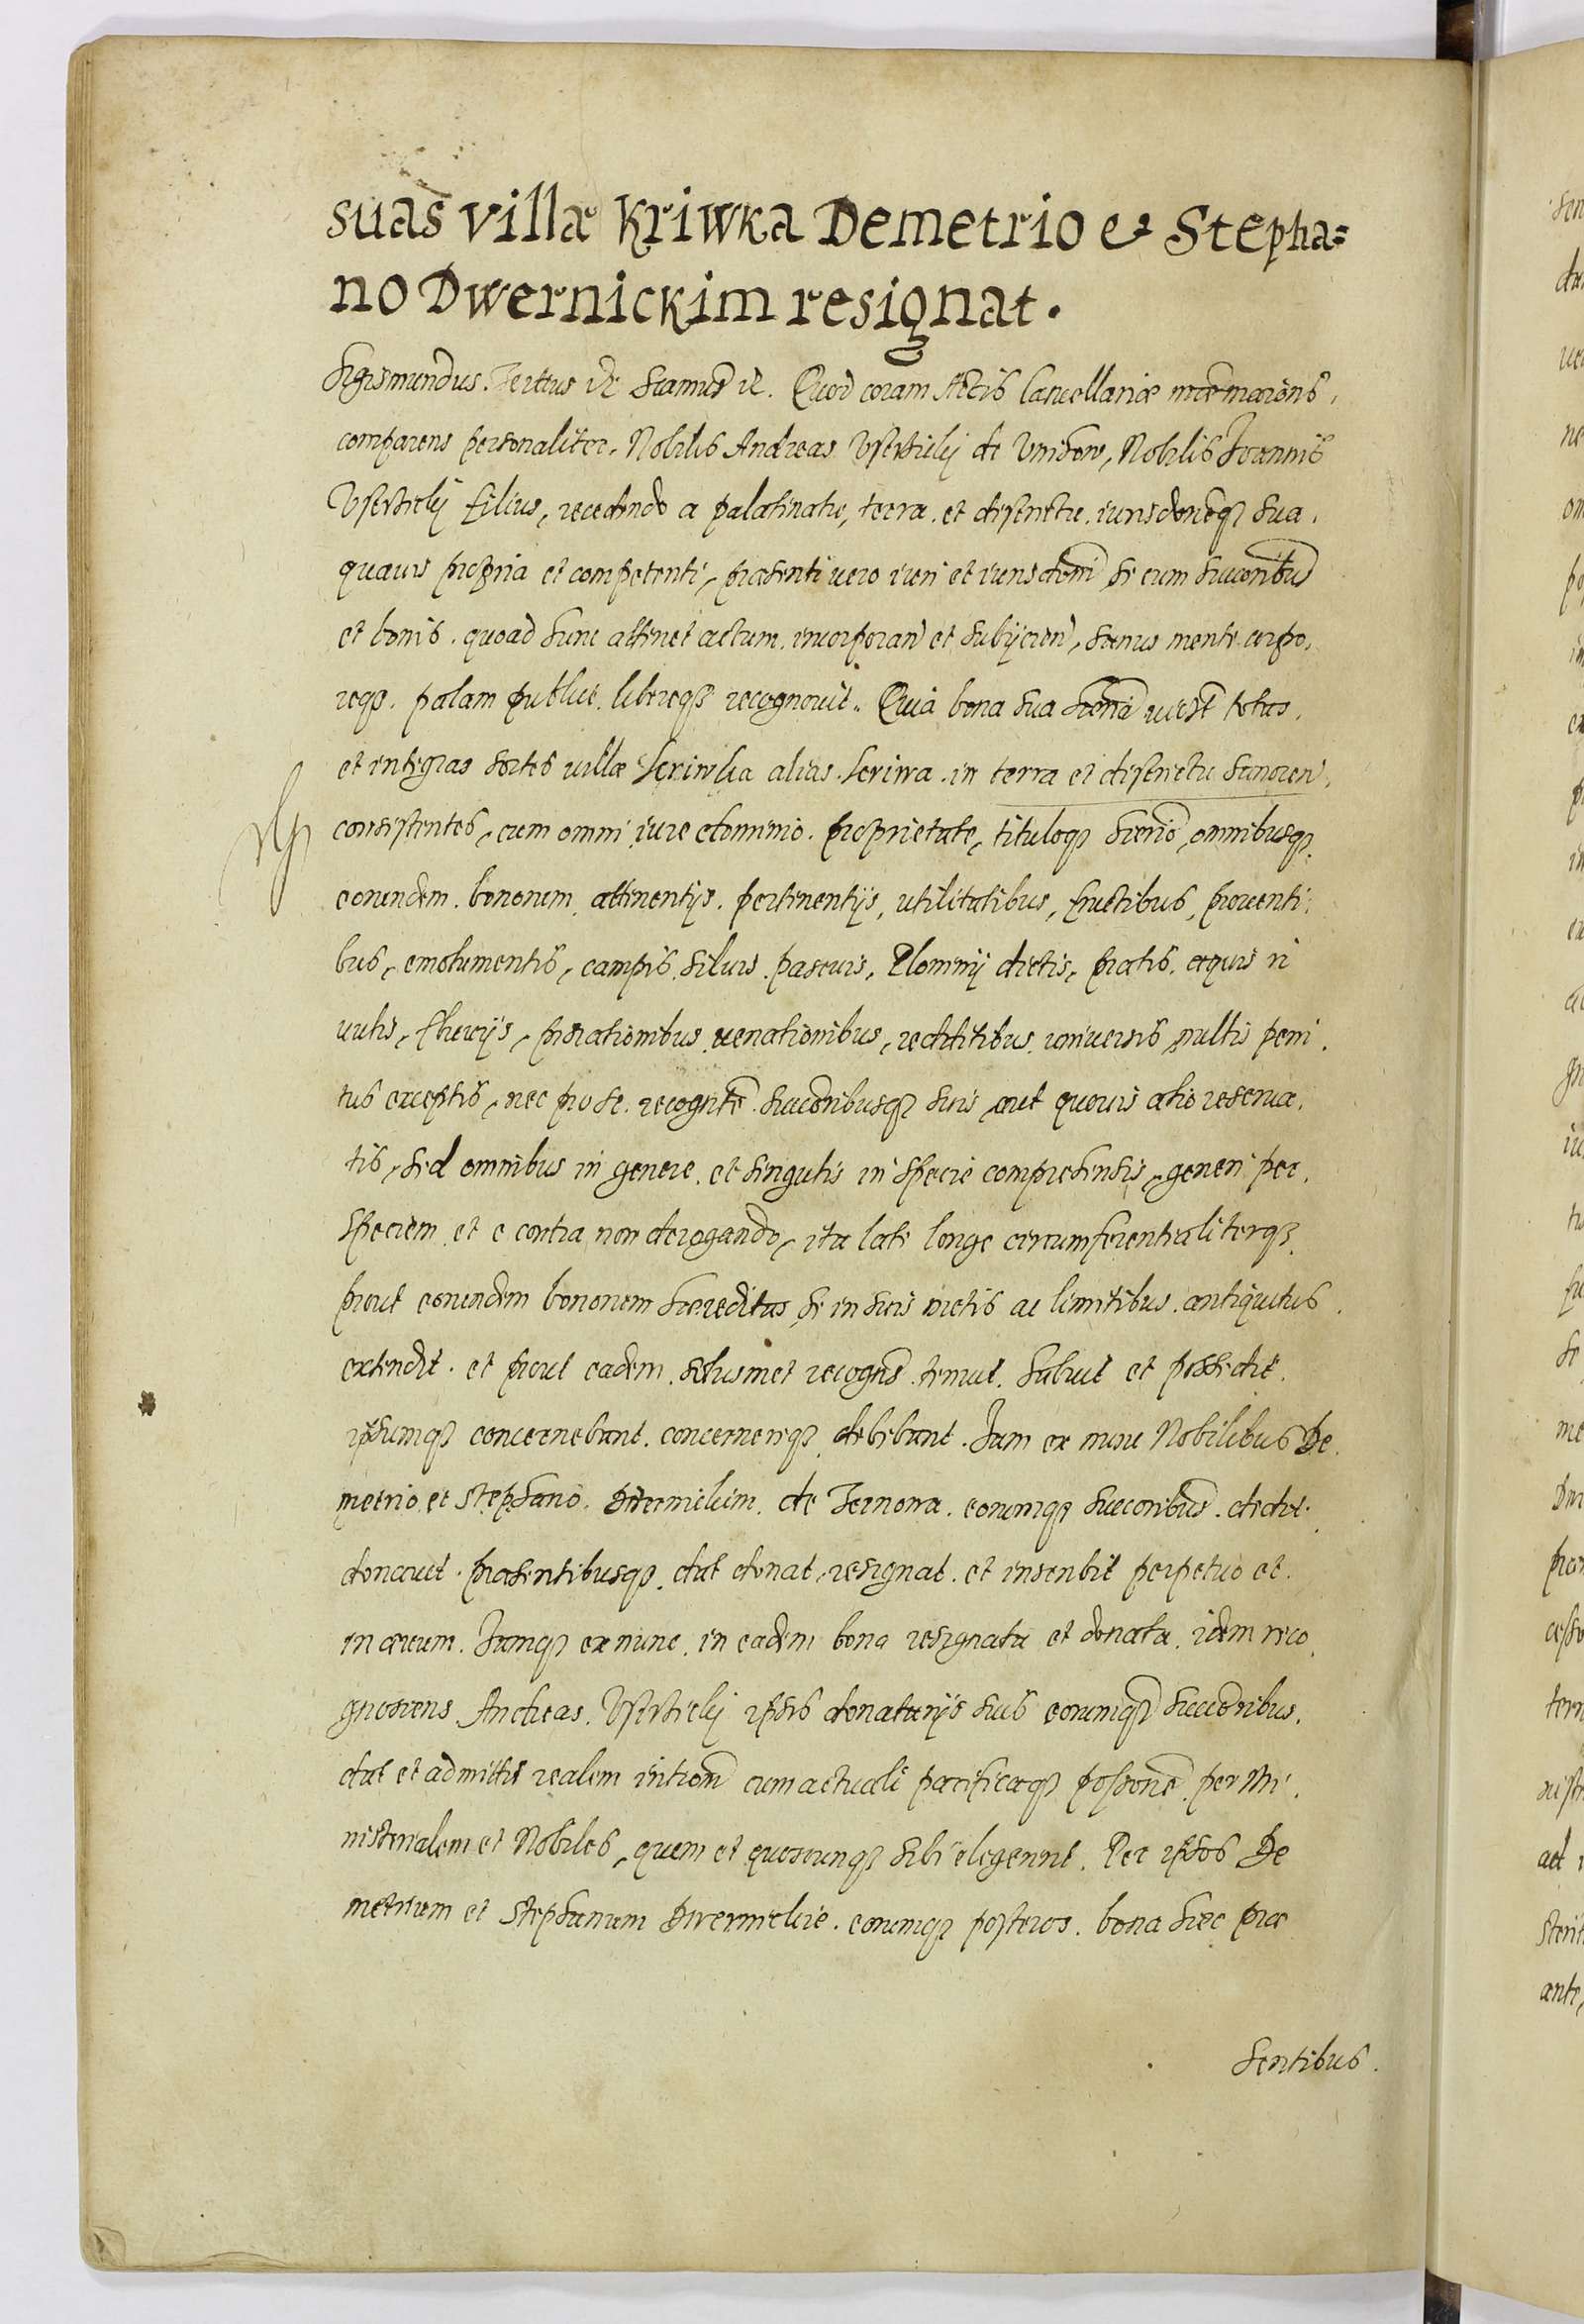 suas villæ Kriwka Demetrio et Stepha=
no Dwernickim resignat.
Sigismundus Tertius etc. Quod coram Actis Cancellariæ
comparens personaliter, Nobilis Andreas de Nobilis Joannis
filius, recedendo a palatinatu, terra et districtu, iurisdoneqꝫ sua,
quauis propria et competenti, præsenti vero iuri et iurisdoni se cum succoribus
et bonis, quoad hunc attinet actum, incorporan et subijcien, sanus mente corpo,
reqꝫ, palam publice libereqꝫ recognovit. Quia bona sua totas,
et integras sortes villæ Kriwka alias in terra et districtu Sanocen,
consistentes, cum omni iure dominio, proprietate, tituloqꝫ omnibusqꝫ
eorundem bonorum, attinentijs, pertinentijs, utilitatibus, fructibus, proventi
bus, emolumentis, campis, siluis, pascuis, Plominij dictis, pratis, aquis ri
vulis, fluvijs, piscationibus, venationibus, redditibus, universis, nullis peni
tus exceptis, nec pro se recognte succoribusqꝫ suis aut quovis alio reserua,
tis, sed omnibus in genere, et singulis in specie comprehensis, generi per,
speciem et e contra non derogando, ita late longe circumferentialiterqꝫ
prout eorundem bonorum hæreditas, se in suis metis ac limitibus, antiquitus
extendit, et prout eadem, solusmet recogns tenuit, habuit et possedit,
ipsumqꝫ concernebant, concernereqꝫ debebant. Jam ex nunc Nobilibus De
metrio et Stephano Dwernickim de Jernowa, eorumqꝫ succoribus, dedit
donavit, præsentibusqꝫ dat donat, resignat, et inscribit perpetuo et
in ævum. Jamqꝫ ex nunc, in eadem bona resignata et donata, idem reco
gnoscens Andreas ipsis donatarijs suis eorumqꝫ succoribus,
dat et admittit realem introm cum actuali pacificaqꝫ possone, per Mi
nisterialem et Nobiles, quem et quoscunqꝫ sibi elegerint. Per ipsos De
metrium et Stephanum Dwernickie, eorumqꝫ posteros, bona hæc præ
sentibus